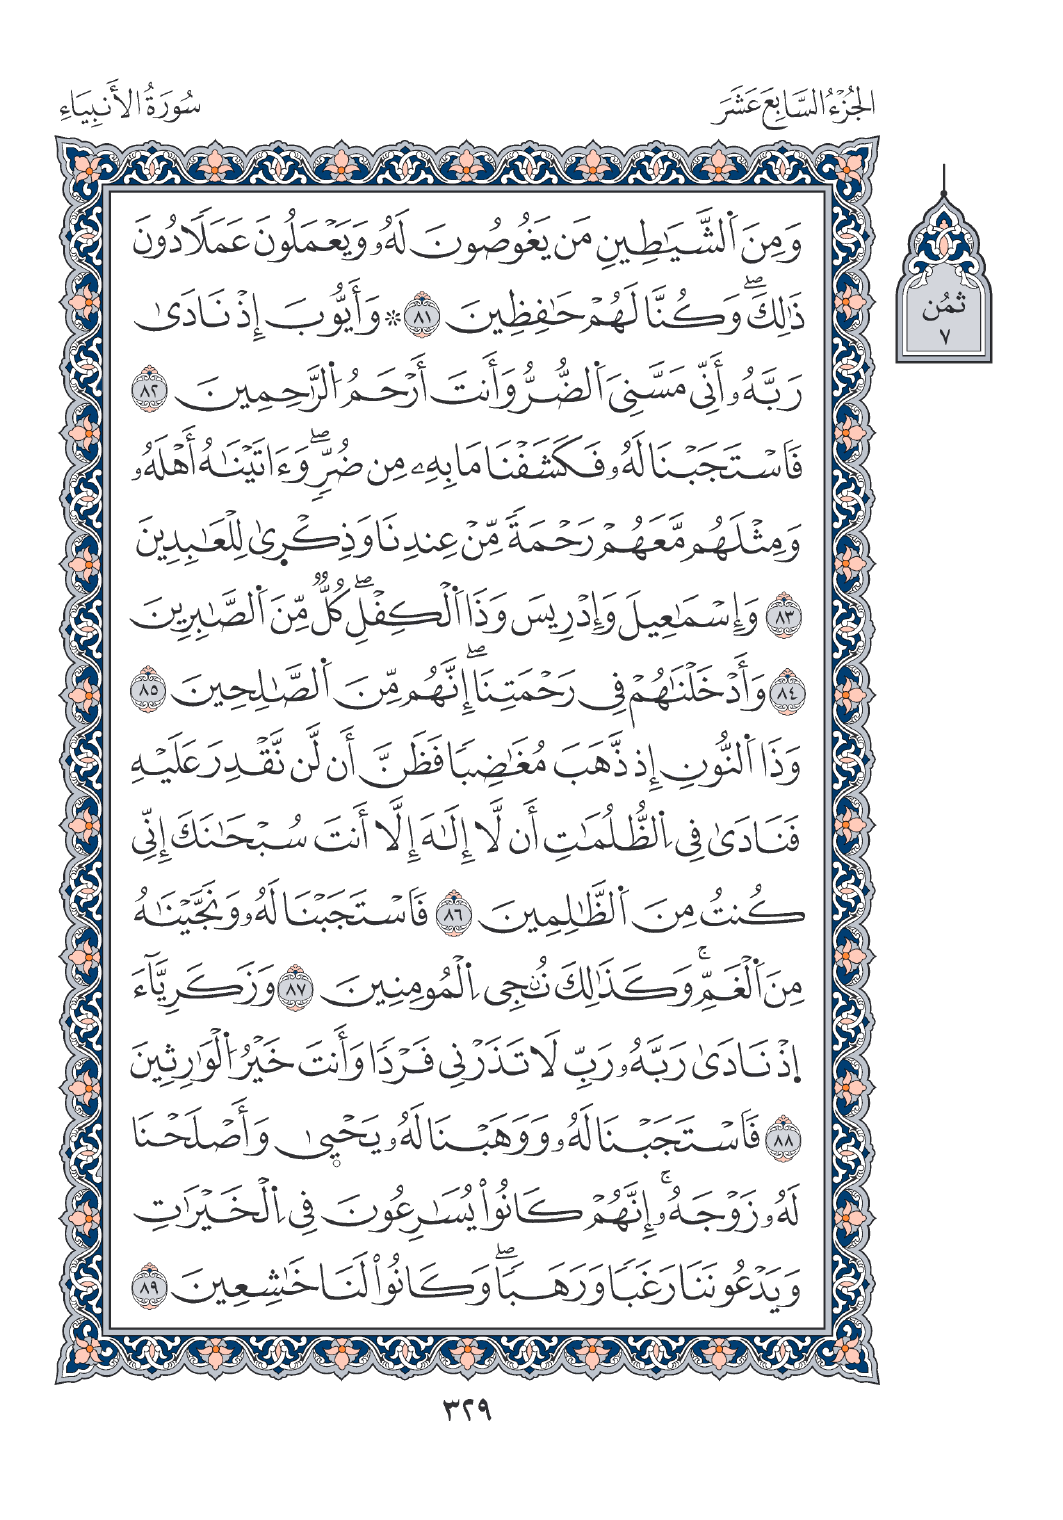 الجُزْءُ السَّابِعَ عَشَرَ
سُورَةُ الأَنبِيَاءِ
وَمِنَ اَ۬لشَّيَٰطِينِ مَن يَغُوصُونَ لَهُۥ وَيَعْمَلُونَ عَمَلاٗ دُونَ
ذَٰلِكَۖ وَكُنَّا لَهُمْ حَٰفِظِينَ ٨١ ۞ وَأَيُّوبَ إِذْ نَادَىٰ
رَبَّهُۥ أَنِّي مَسَّنِيَ اَ۬لضُّرُّ وَأَنتَ أَرْحَمُ اُ۬لرَّٰحِمِينَ ٨٢
فَاسْتَجَبْنَا لَهُۥ فَكَشَفْنَا مَا بِهِۦ مِن ضُرّٖۖ وَءَاتَيْنَٰهُ أَهْلَهُۥ
وَمِثْلَهُم مَّعَهُمْ رَحْمَةٗ مِّنْ عِندِنَا وَذِكْرٜىٰ لِلْعَٰبِدِينَ
٨٣ وَإِسْمَٰعِيلَ وَإِدْرِيسَ وَذَا اَ۬لْكِفْلِۖ كُلّٞ مِّنَ اَ۬لصَّٰبِرِينَ
٨٤ وَأَدْخَلْنَٰهُمْ فِي رَحْمَتِنَاۖ إِنَّهُم مِّنَ اَ۬لصَّٰلِحِينَ ٨٥
وَذَا اَ۬لنُّونِ إِذ ذَّهَبَ مُغَٰضِبٗا فَظَنَّ أَن لَّن نَّقْدِرَ عَلَيْهِ
فَنَادَىٰ فِي اِ۬لظُّلُمَٰتِ أَن لَّا إِلَٰهَ إِلَّا أَنتَ سُبْحَٰنَكَ إِنِّي
كُنتُ مِنَ اَ۬لظَّٰلِمِينَ ٨٦ فَاسْتَجَبْنَا لَهُۥ وَنَجَّيْنَٰهُ
مِنَ اَ۬لْغَمِّۚ وَكَذَٰلِكَ نُۨجِي اِ۬لْمُومِنِينَ ٨٧ وَزَكَرِيَّآءَ
اِ۪ذْ نَادَىٰ رَبَّهُۥ رَبِّ لَا تَذَرْنِي فَرْدٗا وَأَنتَ خَيْرُ اُ۬لْوَٰرِثِينَ
٨٨ فَاسْتَجَبْنَا لَهُۥ وَوَهَبْنَا لَهُۥ يَحْيٜىٰ وَأَصْلَحْنَا
لَهُۥ زَوْجَهُۥۚ إِنَّهُمْ كَانُواْ يُسَٰرِعُونَ فِي اِ۬لْخَيْرَٰتِ
وَيَدْعُونَنَا رَغَبٗا وَرَهَبٗاۖ وَكَانُواْ لَنَا خَٰشِعِينَ ٨٩
ثُمُن
٧
٣٢٩